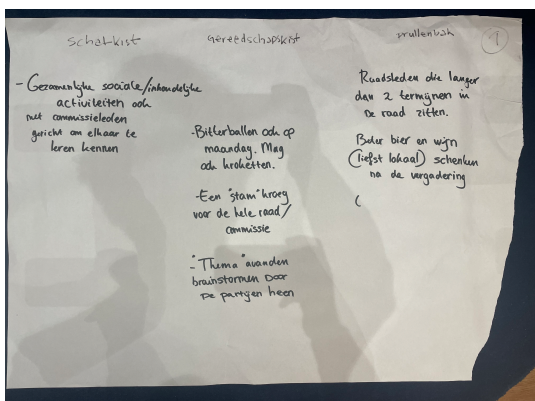 Schatkist
- Gezamenlijke sociale/inhoudelijke
activiteiten ook
met commissieleden
gericht om elkaar te
leren kennen
Gereedschapskist
- Bitterballen ook op
maandag. Mag
ook kroketten.
- Een "stam"kroeg
voor de hele raad/
commissie
- "Thema"avonden
brainstormen door
de partijen heen
Prullenbak
1
Raadsleden die langer
dan 2 termijnen in
de raad zitten.
Beter bier en wijn
(liefst lokaal) schenken
na de vergadering
(